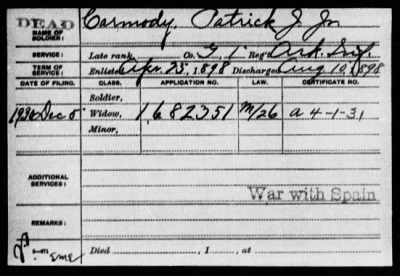 DEAD
NAME OF SOLDIER: Carmody, Patrick J. Jr.
SERVICE: Late rank, Co. I, 1 Reg't Ark. Inf.
TERM OF SERVICE: Enlisted Apr. 25, 1898 Discharged Aug 10, 1898
DATE OF FILING. CLASS. APPLICATION NO. LAW. CERTIFICATE NO.
Soldier,
1930 Dec 5 Widow, 1,682351 M/26 a 4-1-31
Minor,
ADDITIONAL SERVICES:
War with Spain
REMARKS:
Died , 1 , at